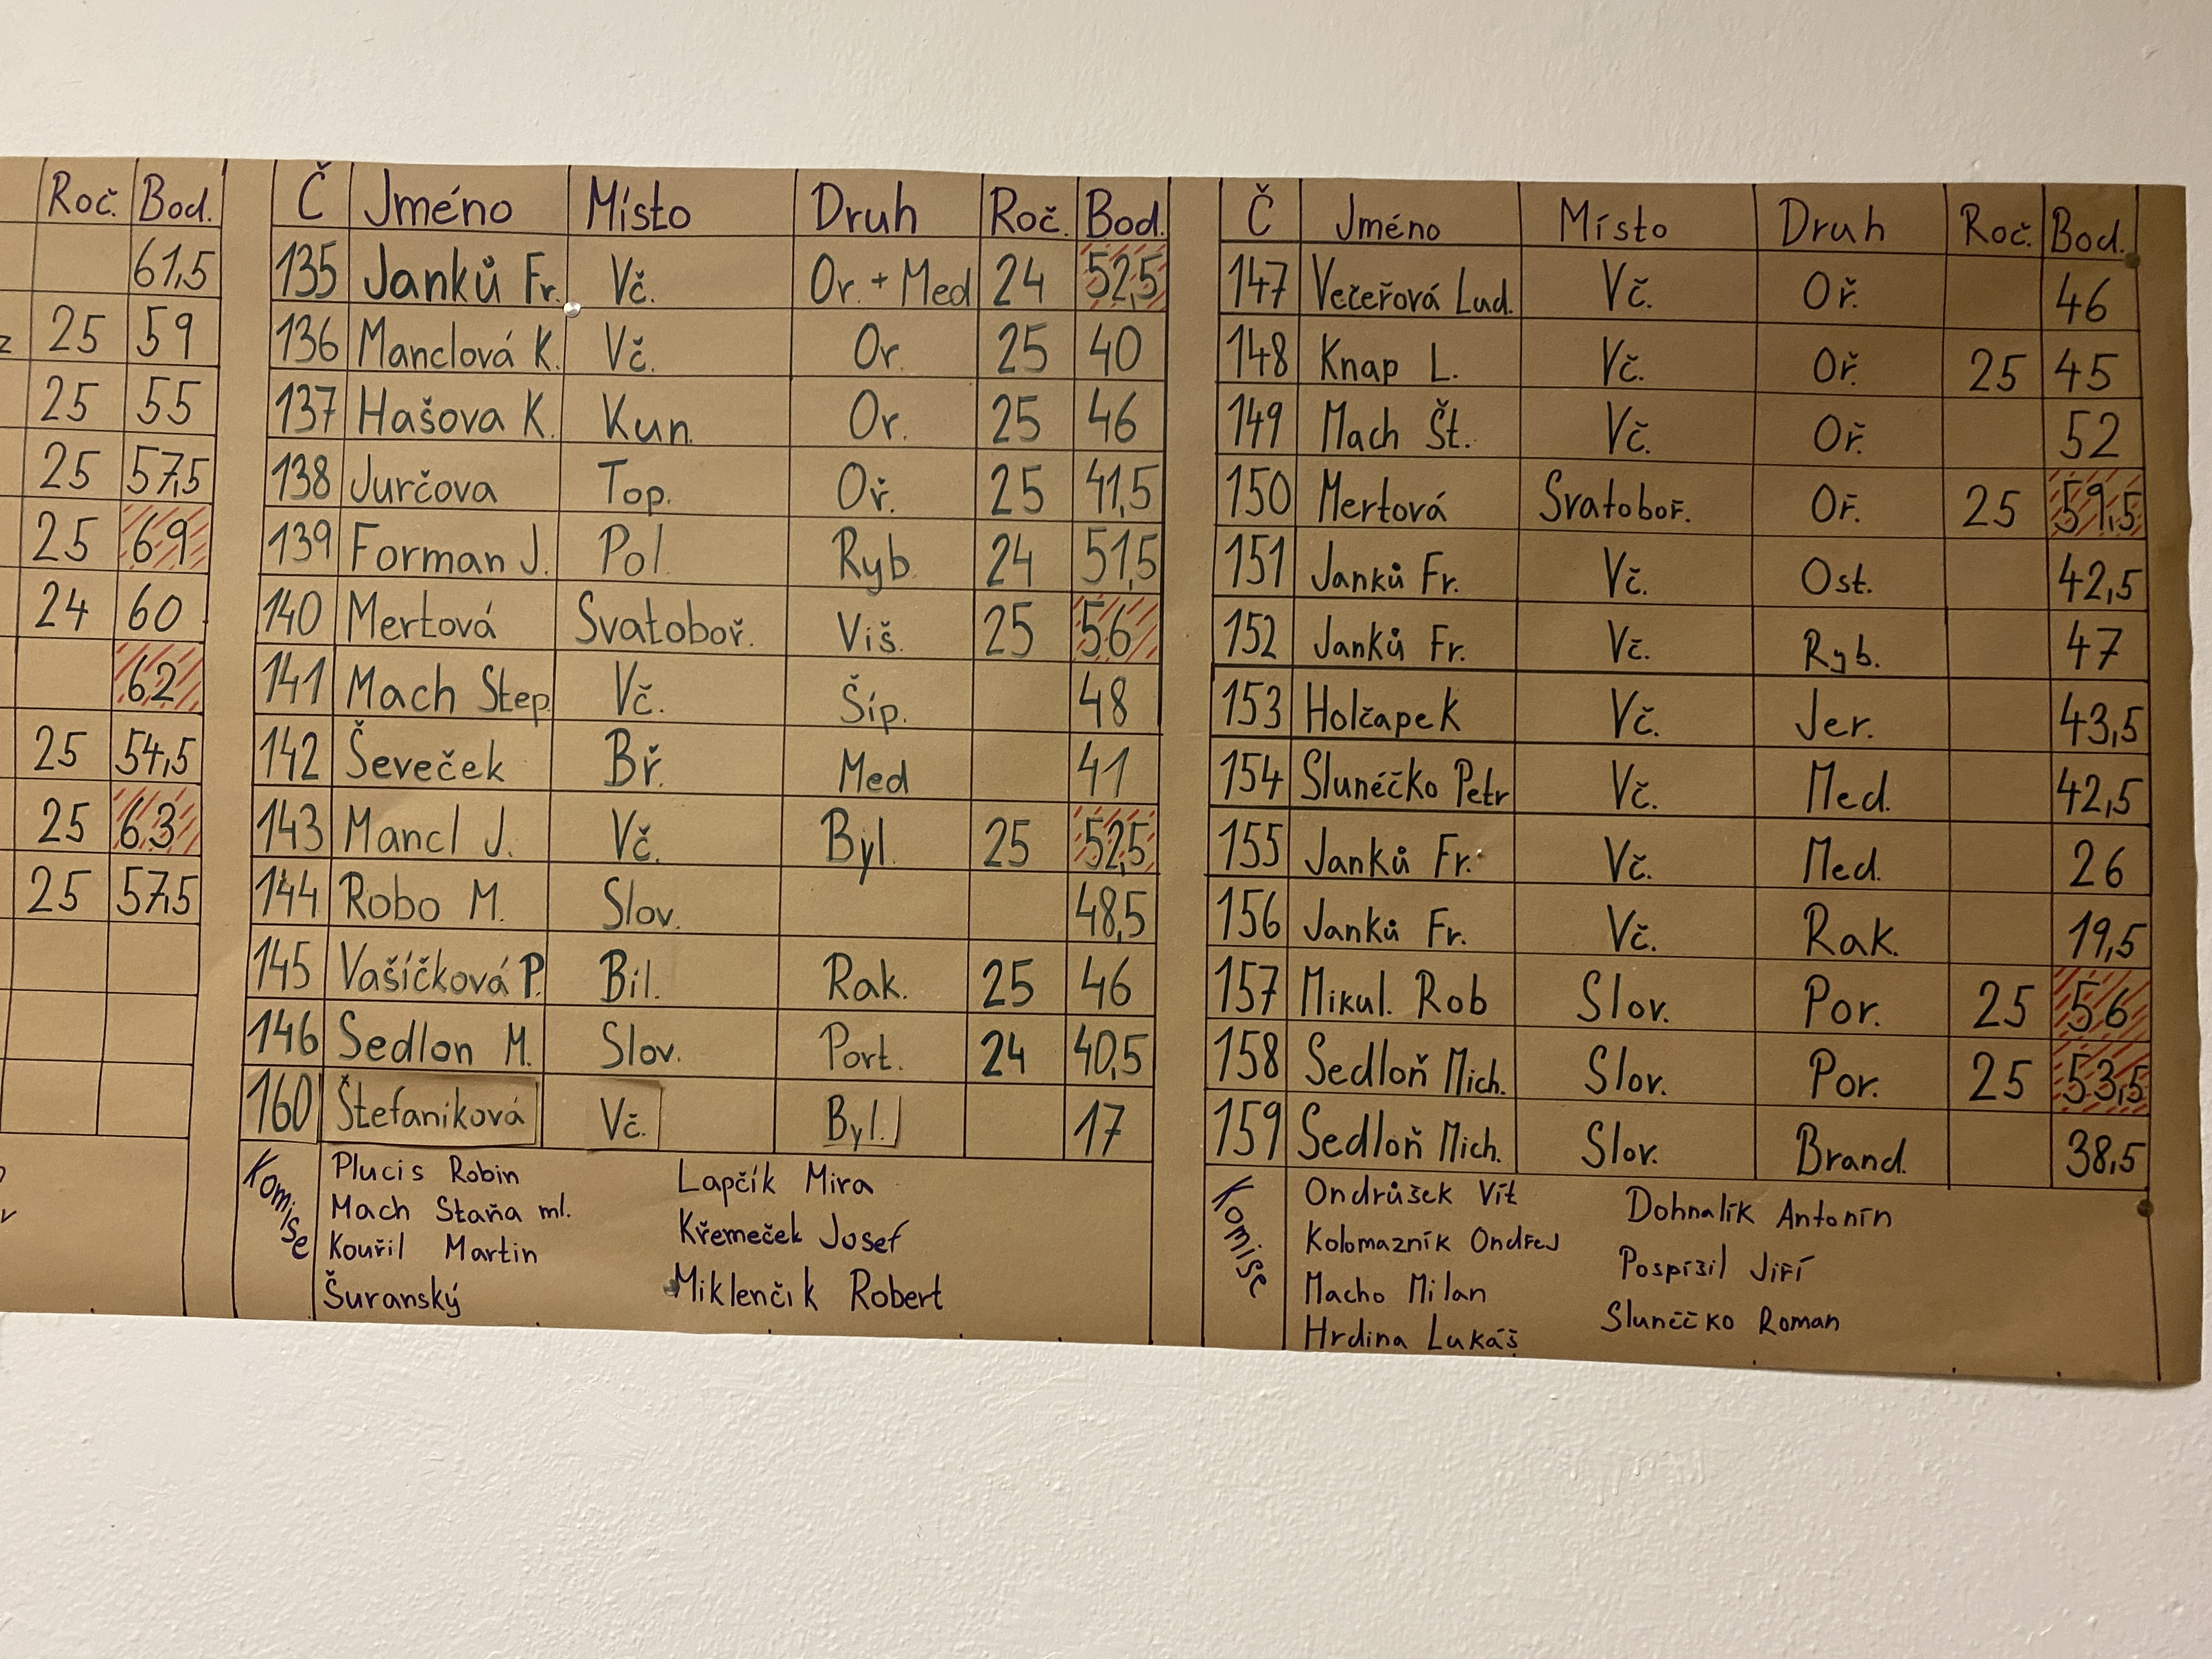 Roč. Bod.
61,5
z 25 59
25 55
25 57,5
25 69
24 60
62
25 54,5
25 63
25 57,5
Č Jméno Místo Druh Roč. Bod.
135 Janků Fr. Vč. Or. + Med 24 52,5
136 Manclová K. Vč. Or. 25 40
137 Hašova K. Kun. Or. 25 46
138 Jurčova Top. Oř. 25 41,5
139 Forman J. Pol. Ryb. 24 51,5
140 Mertová Svatoboř. Viš. 25 56
141 Mach Step. Vč. Šíp. 48
142 Ševeček Bř. Med 41
143 Mancl J. Vč. Byl. 25 52,5
144 Robo M. Slov. 48,5
145 Vašíčková P. Bil. Rak. 25 46
146 Sedlon M. Slov. Port. 24 40,5
160 Štefaniková Vč. Byl. 17
Komise
Plucis Robin
Mach Staňa ml.
Kouřil Martin
Šuranský
Lapčík Mira
Křemeček Josef
Miklenčik Robert
Č Jméno Místo Druh Roč. Bod.
147 Večeřová Lud. Vč. Oř. 46
148 Knap L. Vč. Oř. 25 45
149 Mach Št. Vč. Oř. 52
150 Mertová Svatoboř. Oř. 25 59,5
151 Janků Fr. Vč. Ost. 42,5
152 Janků Fr. Vč. Ryb. 47
153 Holčapek Vč. Jer. 43,5
154 Slunéčko Petr Vč. Med. 42,5
155 Janků Fr. Vč. Med. 26
156 Janků Fr. Vč. Rak. 19,5
157 Mikul. Rob Slov. Por. 25 56
158 Sedloň Mich. Slov. Por. 25 53,5
159 Sedloň Mich. Slov. Brand. 38,5
Komise
Ondrůšek Vít
Kolomazník Ondřej
Macho Milan
Hrdina Lukáš
Dohnalík Antonín
Pospíšil Jiří
Slunéčko Roman